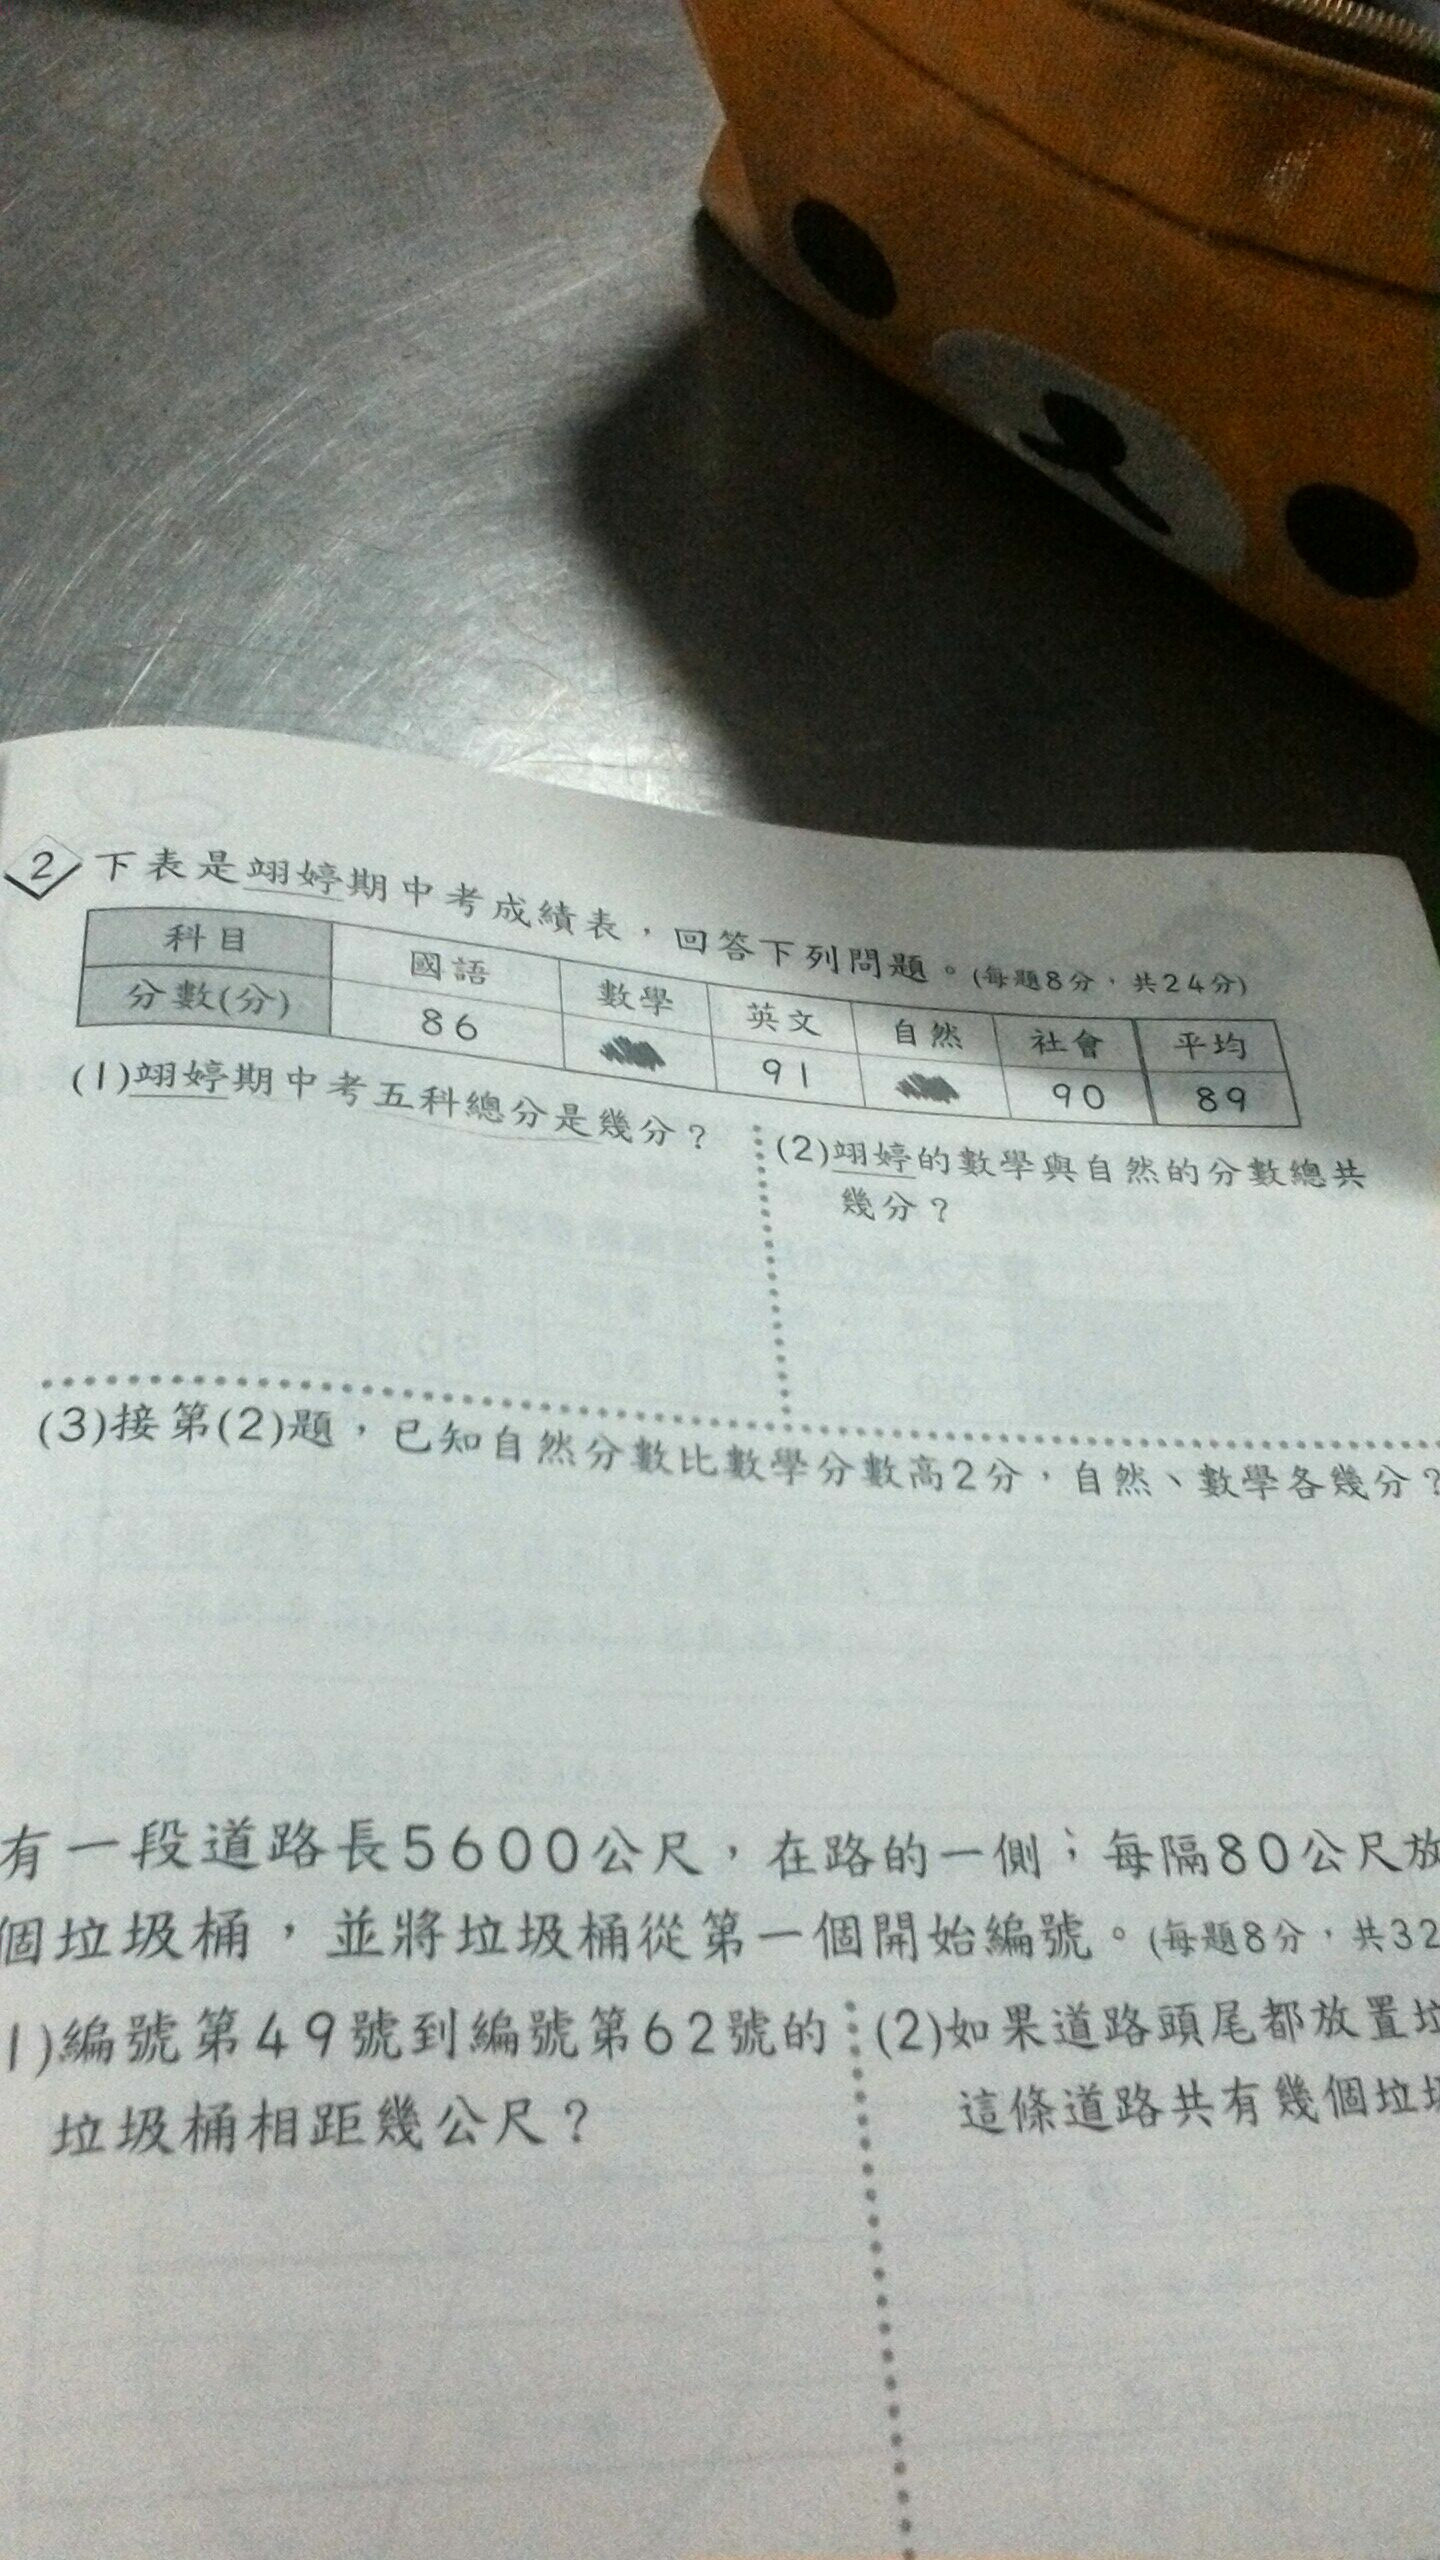 2 下表是翊婷期中考成績表，回答下列問題。(每題8分，共24分)
科目 國語 數學 英文 自然 社會 平均
分數(分) 86 91 90 89
(1)翊婷期中考五科總分是幾分？
(2)翊婷的數學與自然的分數總共
幾分？
(3)接第(2)題，已知自然分數比數學分數高2分，自然、數學各幾分？
有一段道路長5600公尺，在路的一側；每隔80公尺放
個垃圾桶，並將垃圾桶從第一個開始編號。(每題8分，共32
1)編號第49號到編號第62號的
垃圾桶相距幾公尺？
(2)如果道路頭尾都放置垃
這條道路共有幾個垃圾